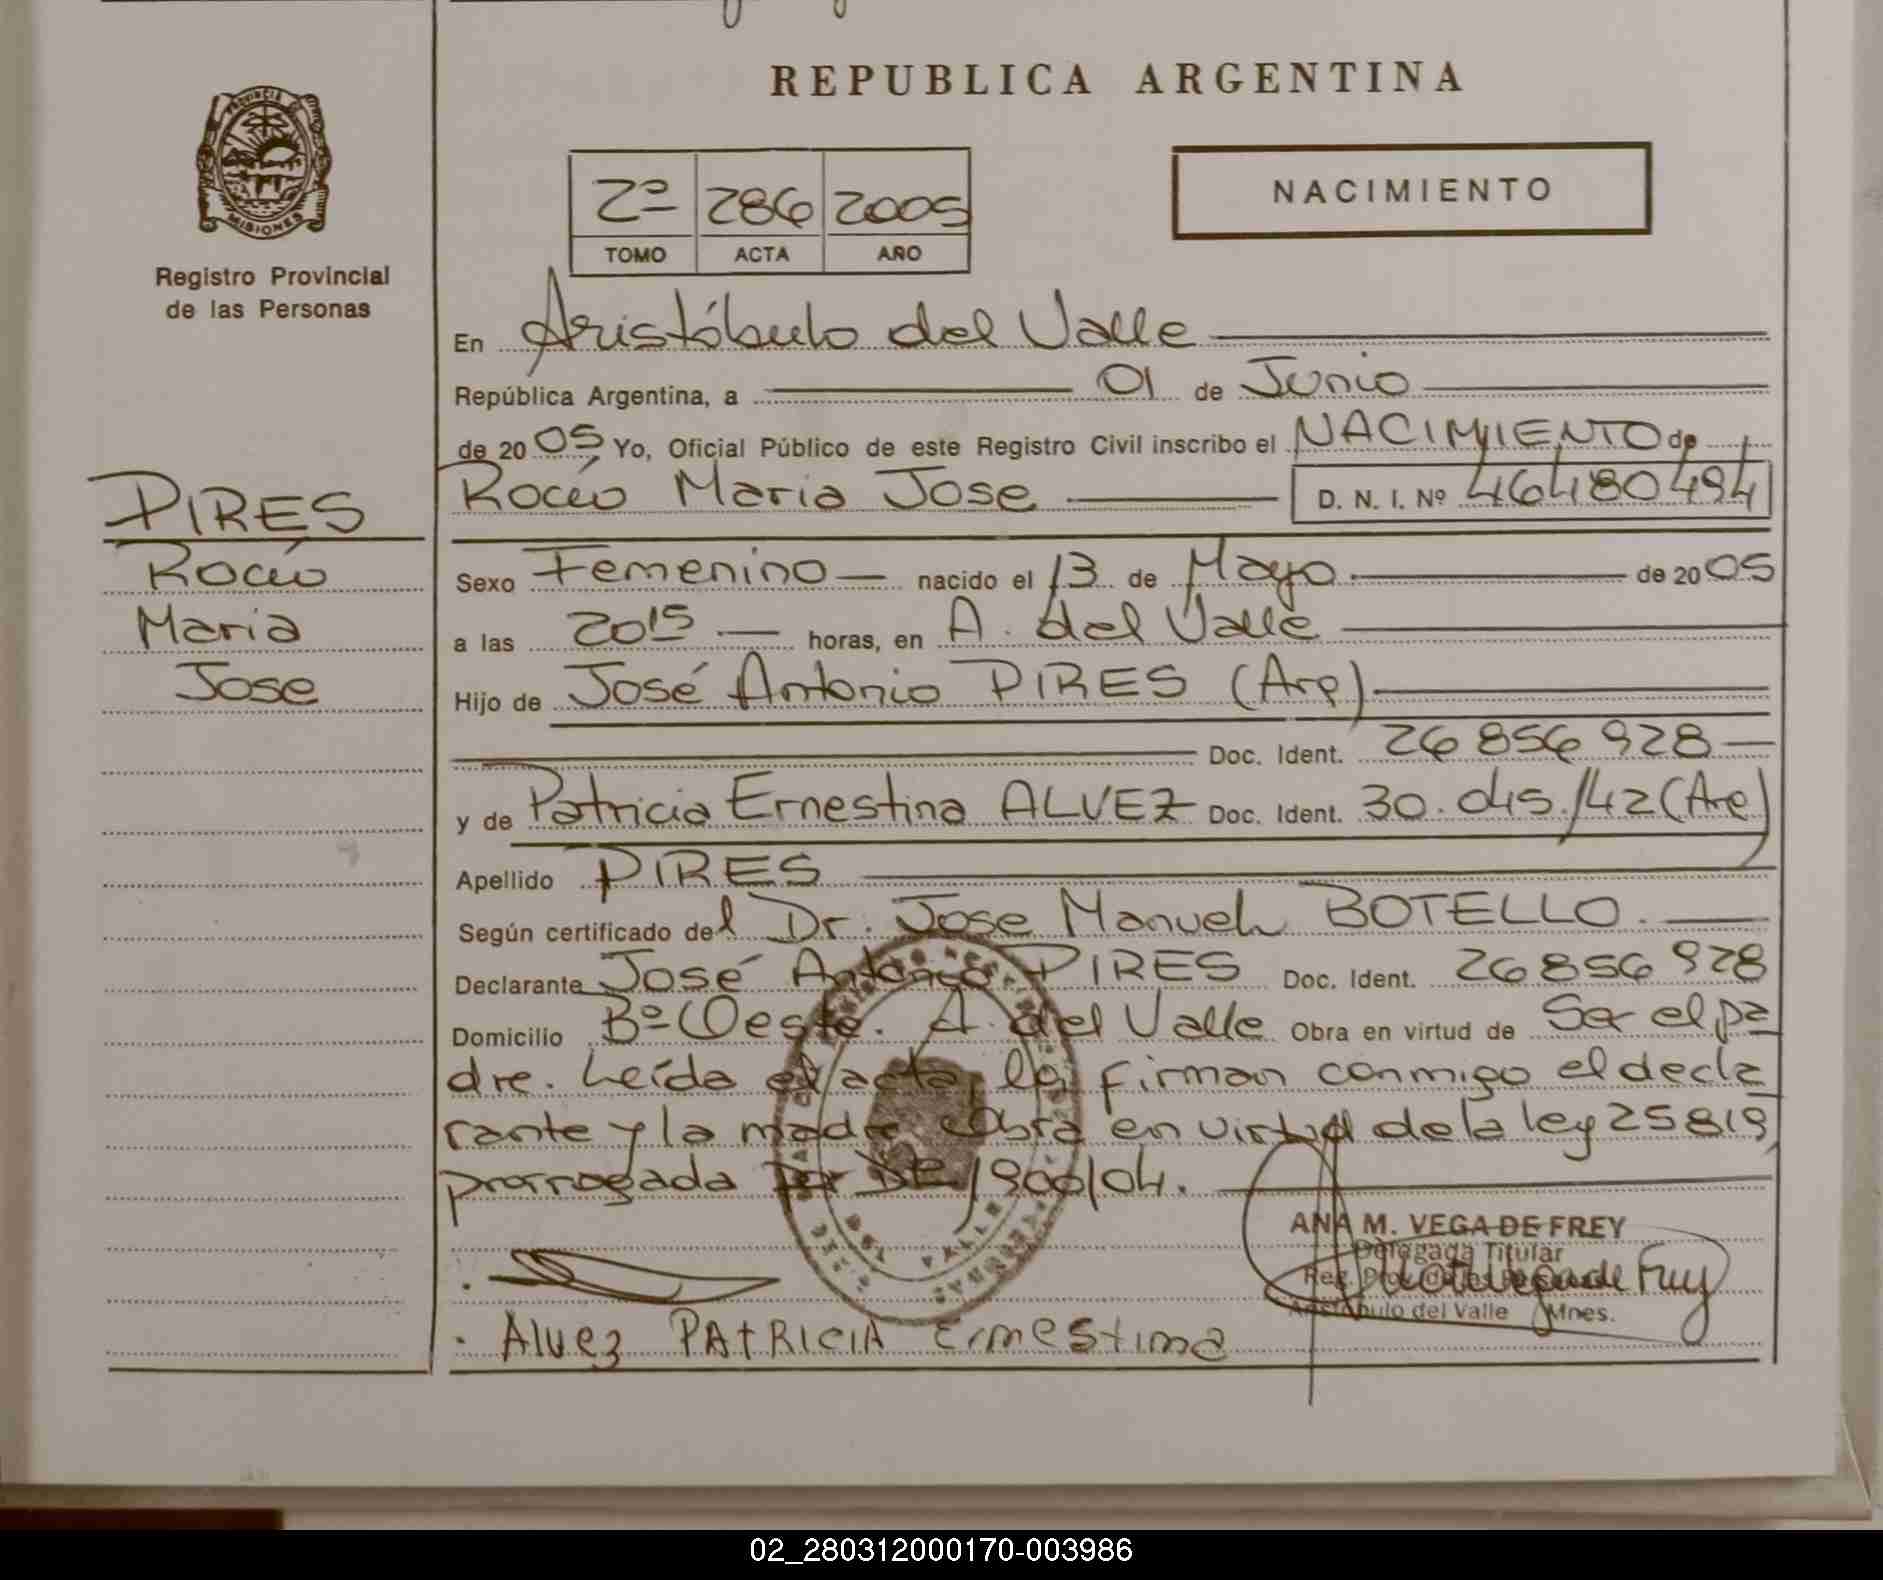 REPUBLICA ARGENTINA
PROVINCIA DE
MISIONES
Registro Provincial
de las Personas
2º 286 2005
TOMO ACTA AÑO
NACIMIENTO
En Aristóbulo del Valle
República Argentina, a 01 de Junio
de 2005 Yo, Oficial Público de este Registro Civil inscribo el NACIMIENTO de
Rocío Maria Jose D. N. I. Nº 46480494
PIRES
Rocío
Maria
Jose
Sexo Femenino nacido el 13 de Mayo de 2005
a las 20 15 horas, en A. del Valle
Hijo de José Antonio PIRES (Arg)
Doc. Ident. 26 856 928
y de Patricia Ernestina ALVEZ Doc. Ident. 30.045.142 (Arg)
Apellido PIRES
Según certificado del Dr. Jose Manuel BOTELLO.
Declarante José Antonio PIRES Doc. Ident. 26 856 928
Domicilio Bº Oeste. A. del Valle Obra en virtud de Ser el pa
dre. Leída el acta, la firman conmigo el decla
rante y la madre Obra en virtud de la ley 25819
prorrogada por 1900/04.
ANA M. VEGA DE FREY
Delegada Titular
Reg. Prov. de las Personas
Aristóbulo del Valle Mnes.
Alvez PAtRICIA Ernestina
02_280312000170-003986